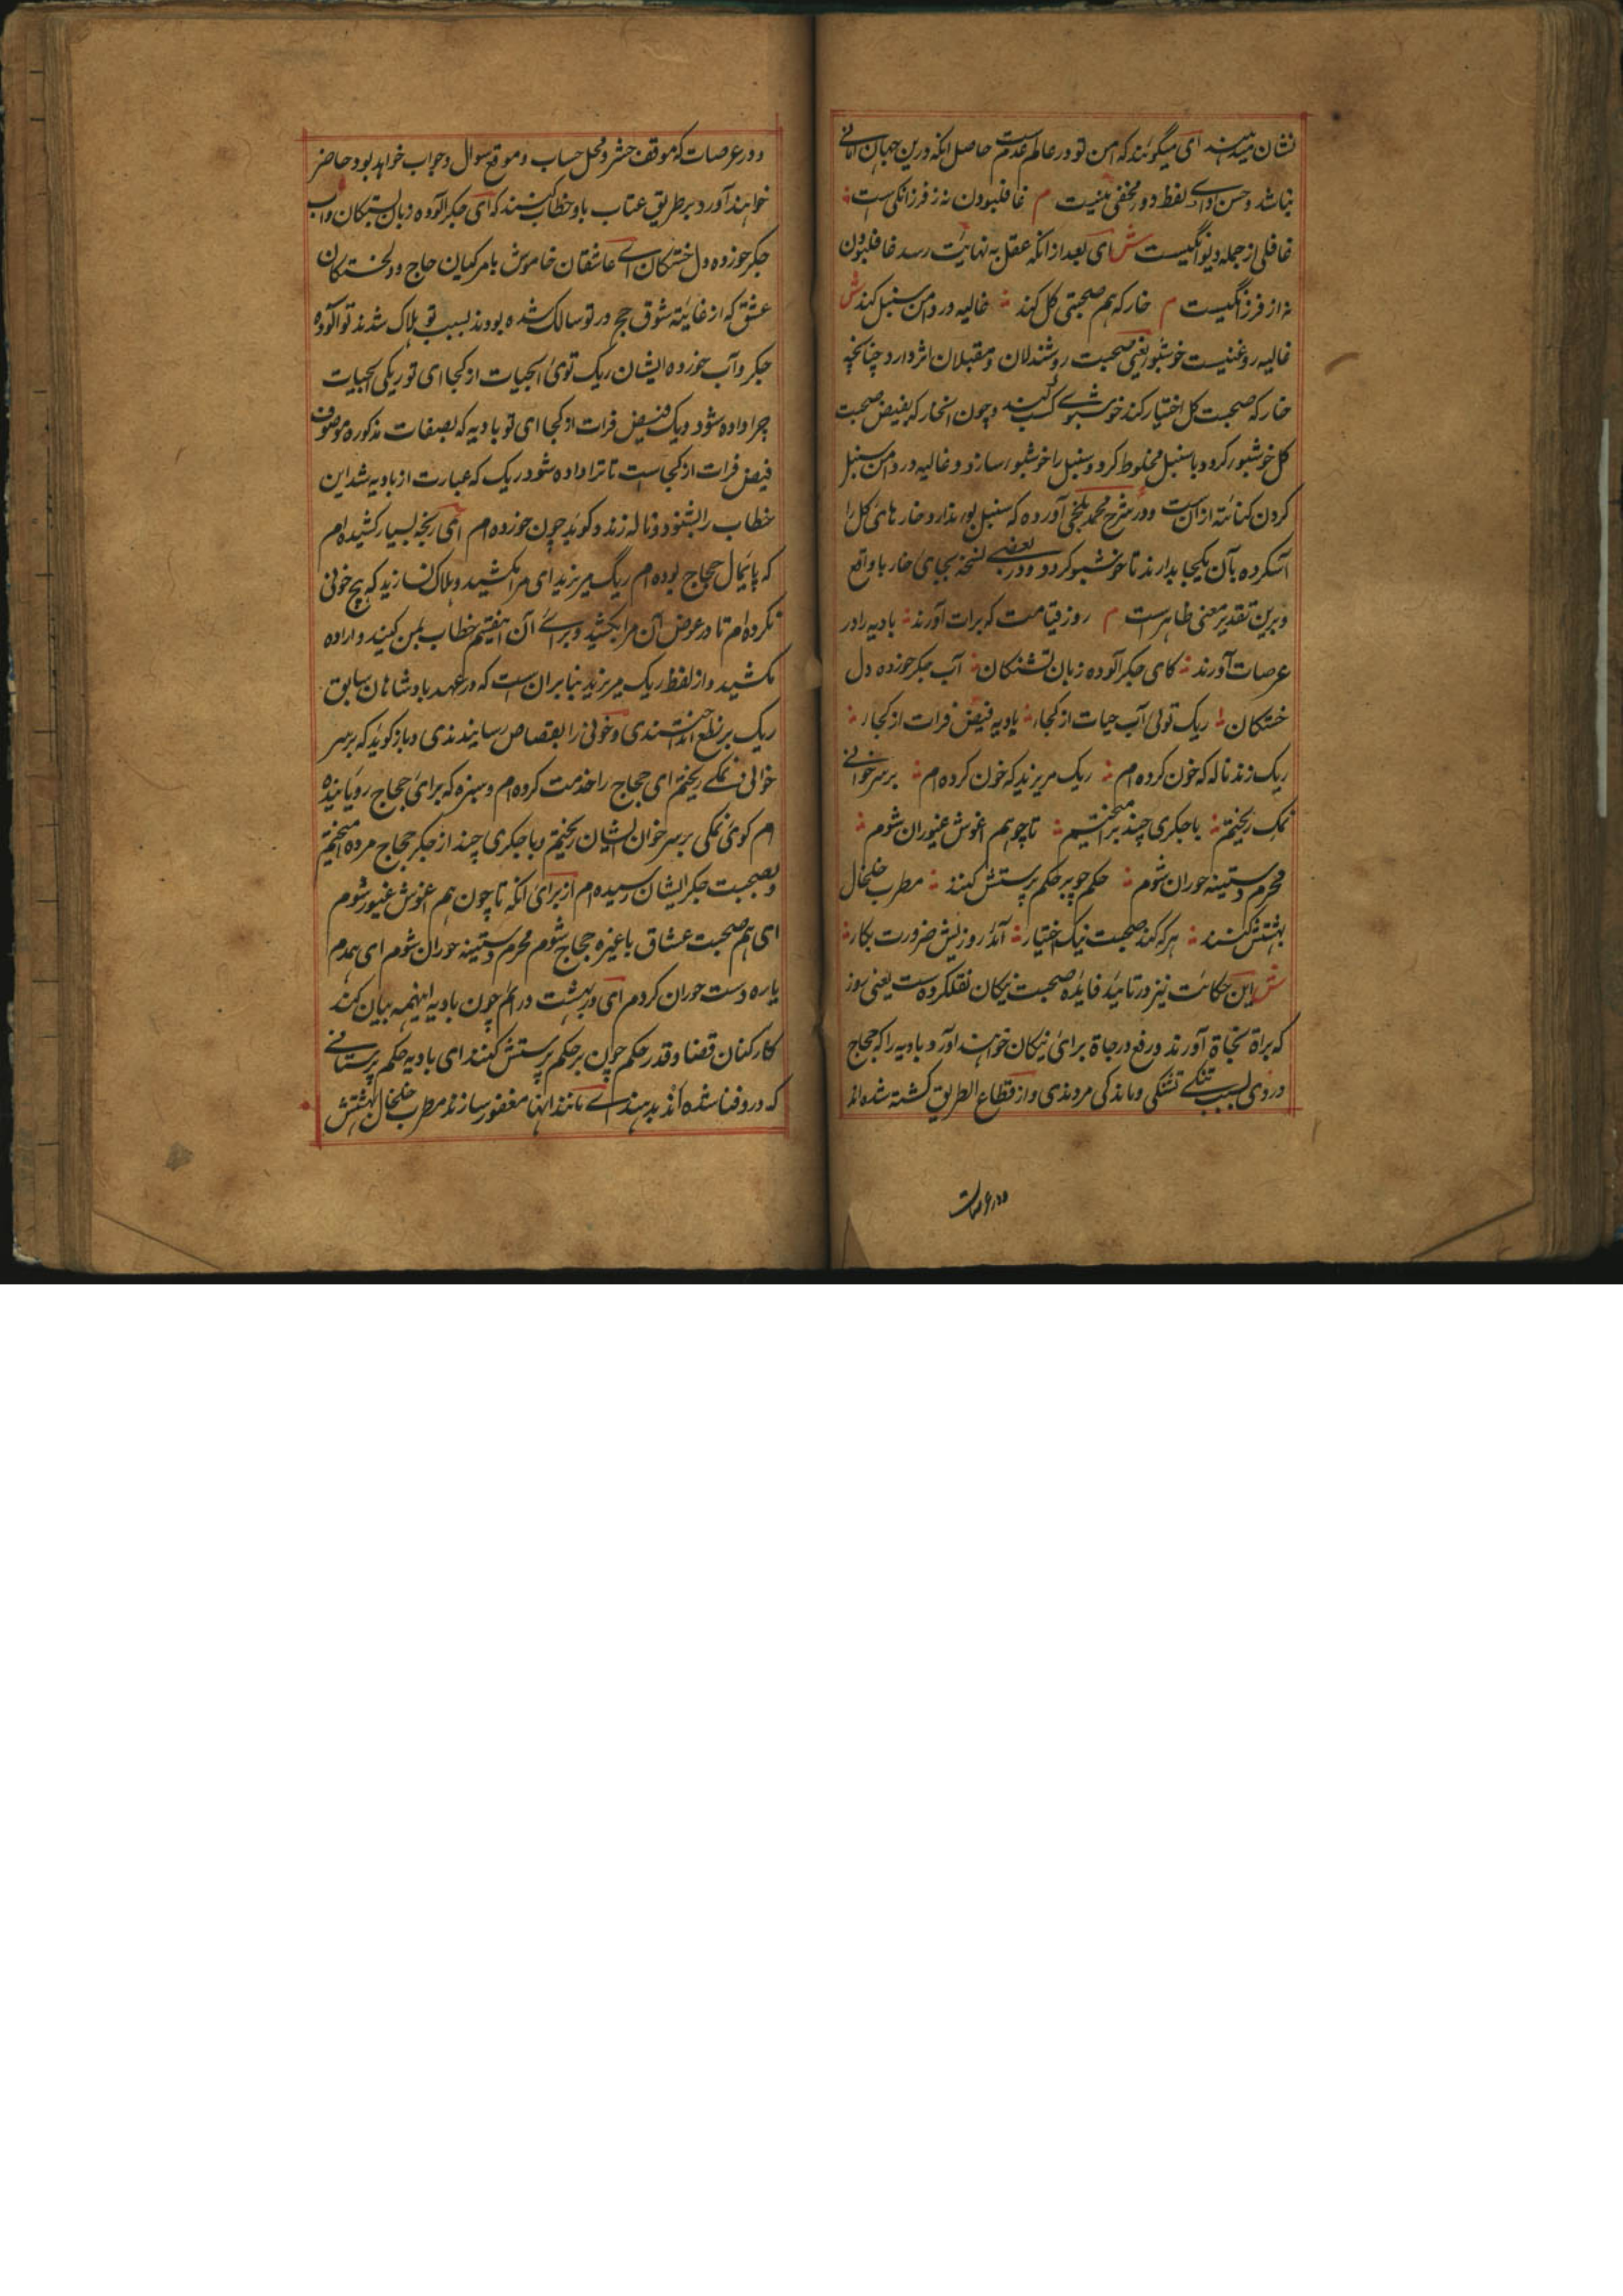 نشان میدهند ای میگویند که امن تو در عالم عدم است حاصل انکه درین جهان امانی
نباشد و حسن وادی لفظ دور مخفی نیست م غافلبودن نه ز فرزانکی است
غافلی از جمله دیوانگیست ش ای بعد از انکه عقل به نهایت رسد غافلبودن
نه از فرزانگیست م خار که هم صحبتی کل کند غالیه در دامن سنبل کند ش
غالیه روغنیست خوشبو یعنی صحبت روشندلان و مقبلان اثر دارد چنانچه
خار که صحبت کل اختیار کند خوشبوی کسب کند و چون انخار که بفیض صحبت
کل خوشبو کردد با سنبل مخلوط کردد و سنبل را خوشبو سازد و غالیه در دامن سنبل
کردن کنایته از ان است و در شرح محمد بلخی آورده که سنبل بو ندارد خارهای کل را
آس کرده بآن یکجا بدارند تا خوشبو کردد و در بعضی نسخه بجای خار با واقع
و برین تقدیر معنی ظاهر است م روز قیامت که برات آورند بادیه را در
عرصات آورند کای جکر آلوده زبان تشنکان آب جکر خورده دل
خستکان ریک توئی آب حیات از کجا بادیه فیض فرات از کجا
ریک زند ناله که خون کرده ام ریک مریزید که خون کرده ام بر سر خوانی
نمک ریختم با جکری چند برامیختم تا چو هم اغوش غیوران شوم
محرم دستینه حوران شوم حکم چو بر حکم پرستش کنند مطرب خلخال
بهشتش کنند هر که کند صحبت نیک اختیار آید روزیش ضرورت بکار
ش این حکایت نیز در تائید فایده صحبت نیکان نقلکرده است یعنی روز
که براة نجاة آورند و رفع درجاة برای نیکان خواهند اورد بادیه را که حجاج
در وی بسبب تشنکی و ماندکی مردندی و از قطاع الطریق کشته شده اند
در عرصات
و در عرصات که موقف حشر و محل حساب و موقع سوال و جواب خواهد بود حاضر
خواهند آورد بر طریق عتاب باو خطاب کنند که ای جکر آلوده زبان بستکان و آب
جکر خورده دل خستکان ای عاشقان خاموش بامر کهیان حاج و دلخستکان
عشق که از غایته شوق حج در تو سالک شده بودند بسبب تو هلاک شدند تو آلوده
جکر و آب خورده ایشان ریک توئی آبحیات از کجا ای تو ریکی آبحیات
چرا داده شود و یک فیض فرات از کجا ای تو بادیه که بصفات مذکوره موصوف
فیض فرات از کجاست تا ترا داده شود ریک که عبارت از بادیه شد این
خطاب را بشنود و ناله زند و کوید چون خورده ام ای رنجه بسیار کشیده ام
که پایمال حجاج بوده ام ریگ مریزید ای مرا مکشید و هلاک نسازید که هیچ خونی
نکرده ام تا در عوض آن مرا بکشید و برای آن اینقسم خطاب بمن کنید و اراده
مکشید و از لفظ ریک مریزید بنا بران است که در عهد بادشاهان سابق
ریک بر نطع انداختندی و خونی را بقصاص رسانیدندی و باز کوید که بر سر
خوانی نمکی ریختم ای حجاج را خدمت کرده ام و سبزه که برای حجاج رویانیده
ام کوئی نمکی بر سر خوان ایشان ریختم و با جکری چند از جکر حجاج مرده امیختم
و بصحبت جکر ایشان رسیده ام از برای انکه تا چون هم اغوش غیور شوم
ای هم صحبت عشاق باغیره حجاج شوم محرم دستینه حوران شوم ای همدم
یاره دست حوران کردم ای در بهشت درایم چون بادیه اینهمه بیان کند
کارکنان قضا و قدر حکم چون بر حکم پرستش کنند ای بادیه حکم پرستانی
که در و فنا شده اند بدهند ای مانند انها مغفور سازند مطرب خلخال بهشتش